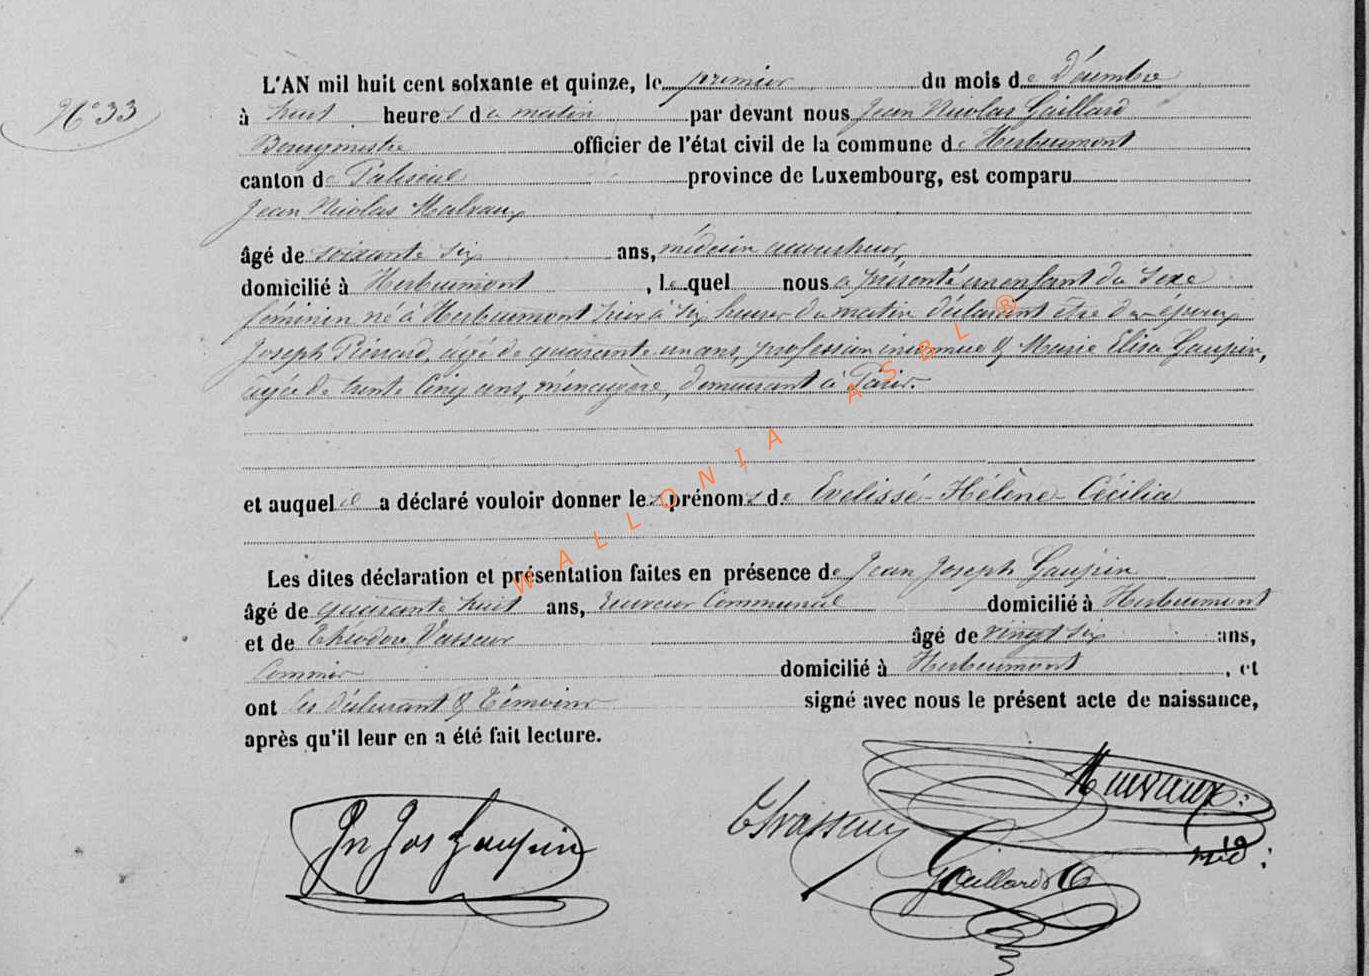 N° 33
L'AN mil huit cent soixante et quinze, le premier du mois de Décembre
à huit heures du matin par devant nous Jean Nicolas Gaillard
Bourgmestre officier de l'état civil de la commune de Herbeumont
canton de Paliseul province de Luxembourg, est comparu
Jean Nicolas Malvaux
âgé de soixante six ans, médecin accoucheur,
domicilié à Herbeumont, lequel nous a présenté un enfant du sexe
féminin né à Herbeumont hier à six heures du matin déclarant être des époux
Joseph Pierrard, âgé de quarante un ans, profession inconnue & Marie Elisa Gaupin,
âgée de trente cinq ans, ménagère, demeurant à Paris.
et auquel il a déclaré vouloir donner les prénoms de Evelissé - Hélène - Cécilia
Les dites déclaration et présentation faites en présence de Jean Joseph Gaupin
âgé de quarante huit ans, receveur Communal domicilié à Herbeumont
et de Théodore Vasseur âgé de vingt six ans,
Commis domicilié à Herbeumont, et
ont les déclarant & témoins signé avec nous le présent acte de naissance,
après qu'il leur en a été fait lecture.
Jn Jos Gaupin
Th Vasseur
Malvaux
méd
Gaillard
WALLONIA ASBL ®